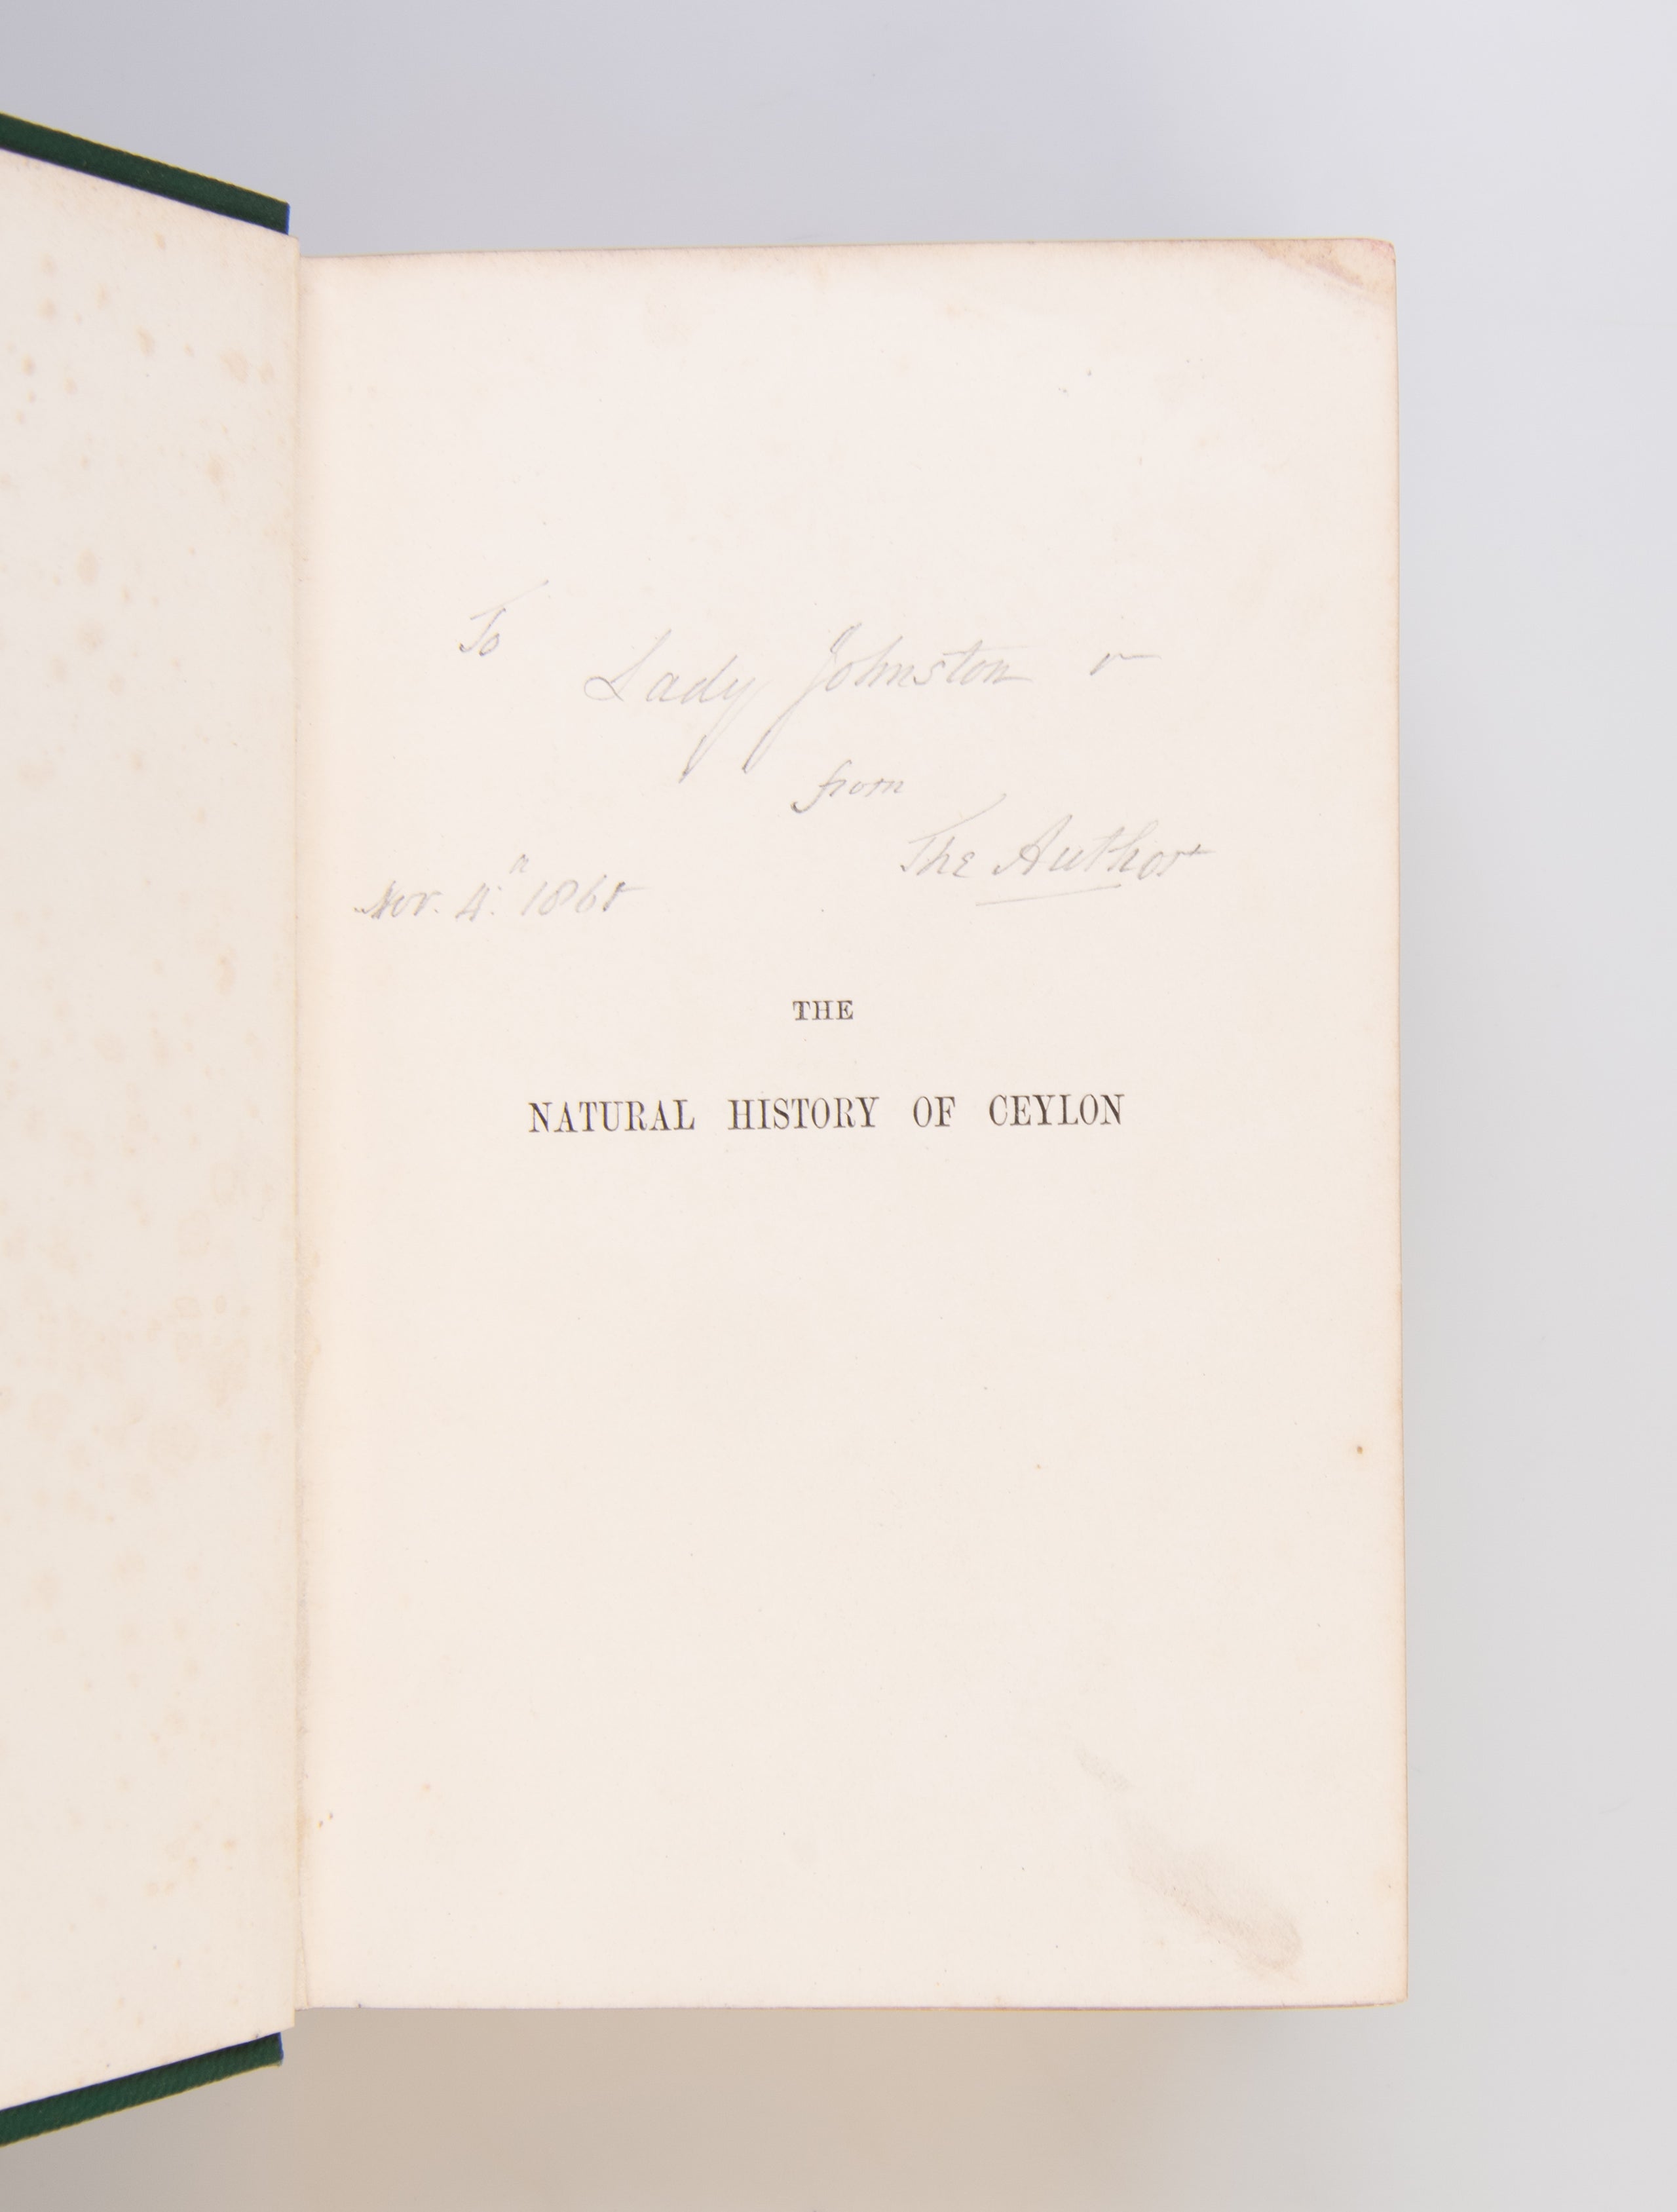 To
Lady Johnston
from
The Author
Nov. 4.
THE
NATURAL HISTORY OF CEYLON